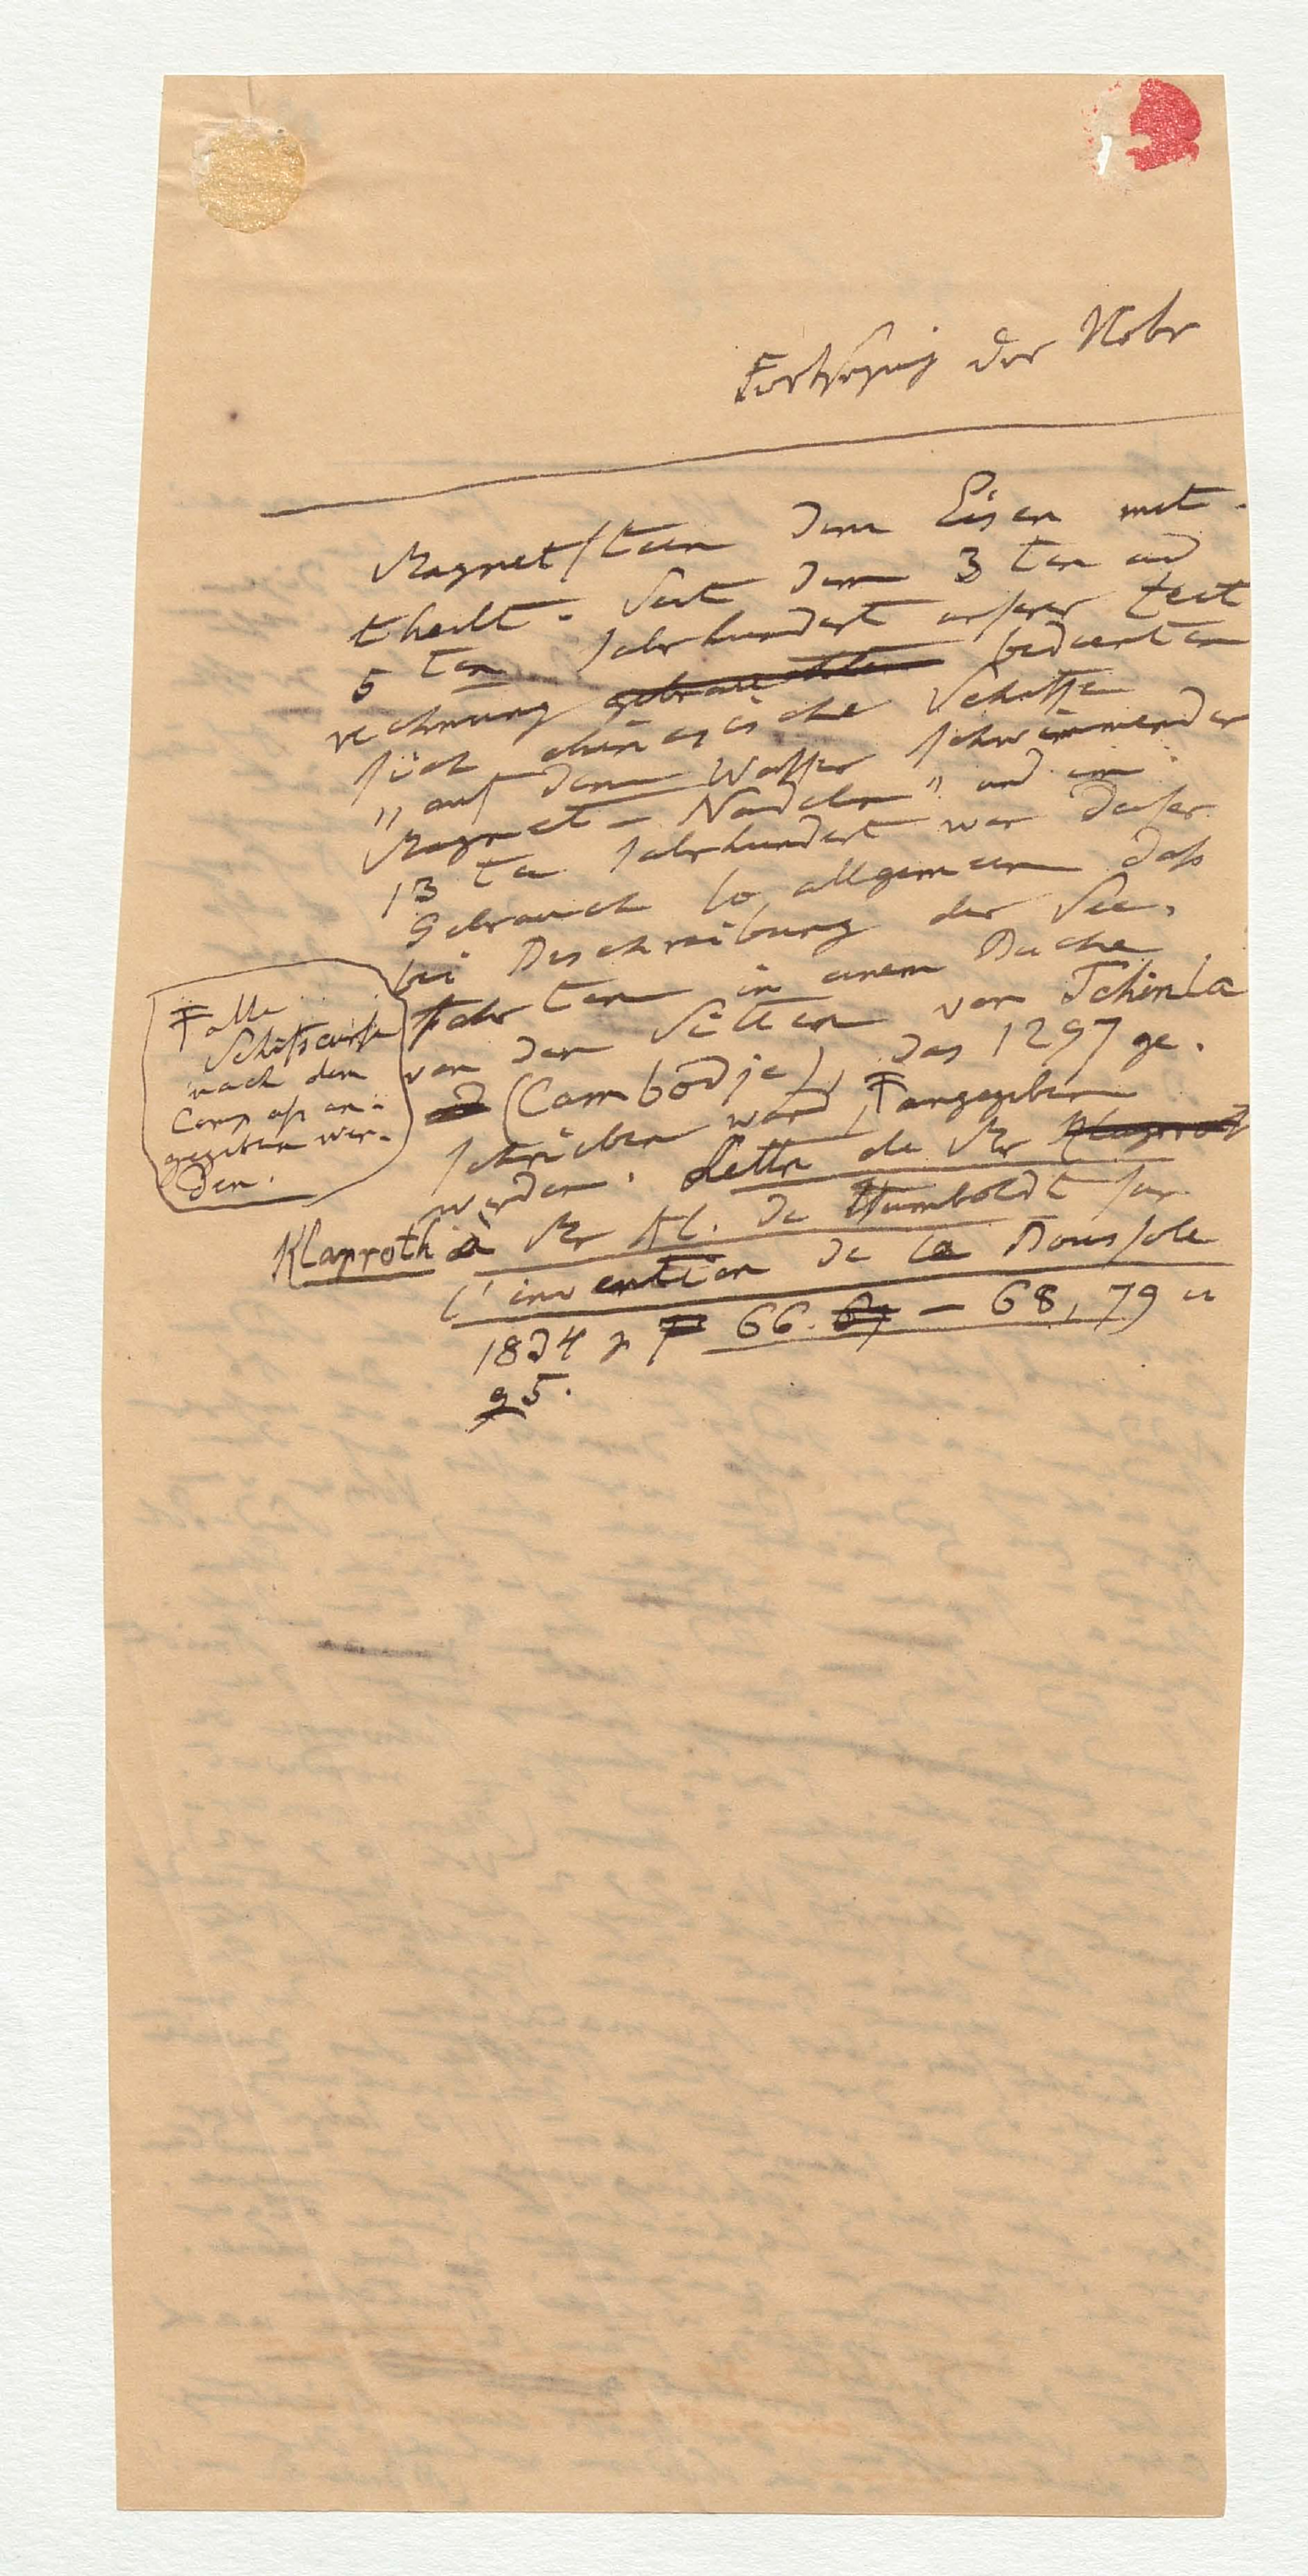 Fortsezung der Note
Magnetstein dem Eisen mit-
theilt. Seit dem 3ten und
5ten Jahrhundert unsrer Zeit
rechnung gebrauchten bedienten
sich chinesische Schiffe
"auf dem Wasser schwimmender
Magnet-Nadeln" und im
13ten Jahrhundert war dieser
Gebrauch so allgemein daß
bei Beschreibung der See-
fahrten in einem Buche
von den Sitten von Tchinla
(Cambodje), das 1297 ge-
schrieben ward, Ŧ angegeben
werden. Lettre de Mr Klaproth
Klaproth à Mr Al. de Humboldt sur
l'invention de la Boussole
1834 p 66. 67 – 68, 79 u
95.
Ŧ alle
Schifscurse
nach dem
Compass an-
gegeben wer-
den.